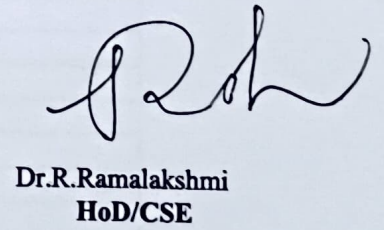 Dr.R.Ramalakshmi
HoD/CSE